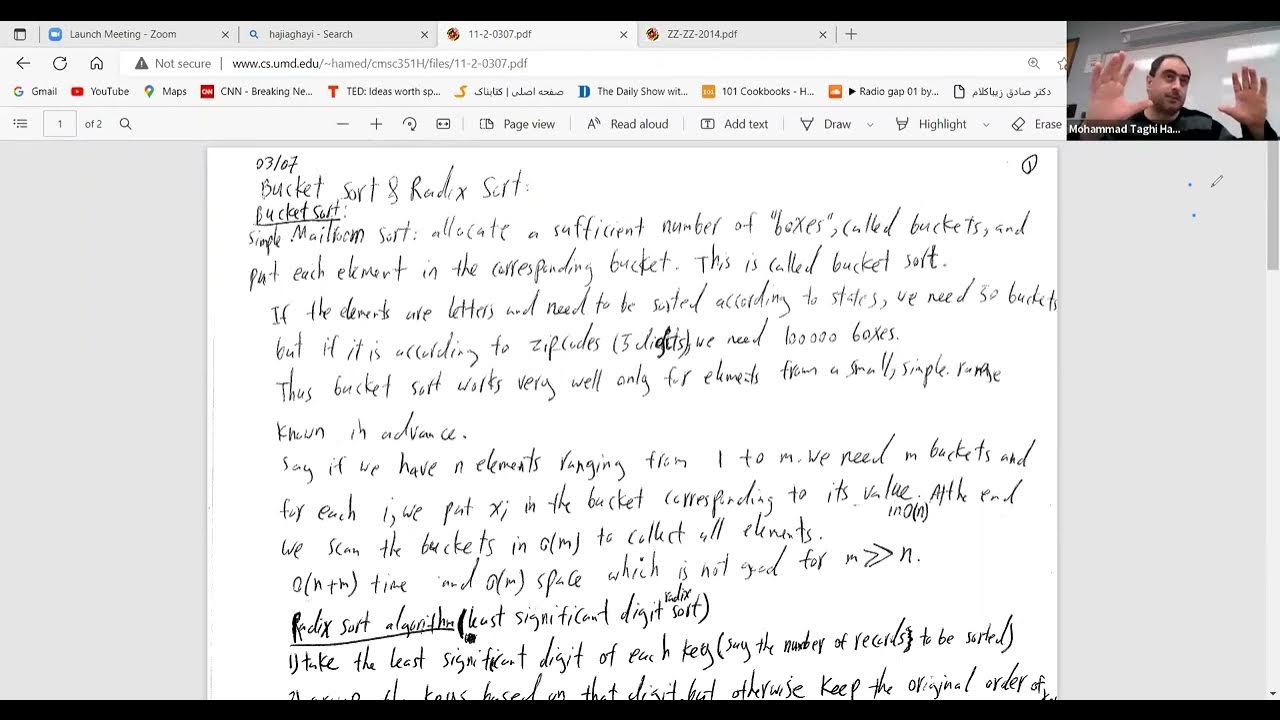 Launch Meeting - Zoom
hajiaghayi - Search
11-2-0307.pdf
ZZ-ZZ-2014.pdf
Not secure www.cs.umd.edu/~hamed/cmsc351H/files/11-2-0307.pdf
Gmail
YouTube
Maps
CNN - Breaking Ne...
TED: Ideas worth sp...
صفحه اصلی | کتابناک
The Daily Show wit...
101 Cookbooks - H...
Radio gap 01 by...
دکتر صادق زیباکلام
1 of 2
Page view
Read aloud
Add text
Draw
Highlight
Erase
Mohammad Taghi Ha...
03/07
1
Bucket Sort & Radix Sort:
Bucket sort:
simple Mailroom sort: allocate a sufficient number of "boxes", called buckets, and
put each element in the corresponding bucket. This is called bucket sort.
If the elements are letters and need to be sorted according to states, we need 50 buckets
but if it is according to zipcodes (5 digits), we need 100000 boxes.
Thus bucket sort works very well only for elements from a small, simple range
known in advance.
Say if we have n elements ranging from 1 to m. We need m buckets and
for each i, we put xi in the bucket corresponding to its value. At the end
in O(n)
we scan the buckets in O(m) to collect all elements.
O(n+m) time and O(m) space which is not good for m >> n.
Radix sort algorithm (least significant digit radix sort)
1) take the least significant digit of each key (say the number of records to be sorted)
2) group the keys based on that digit, but otherwise keep the original order of